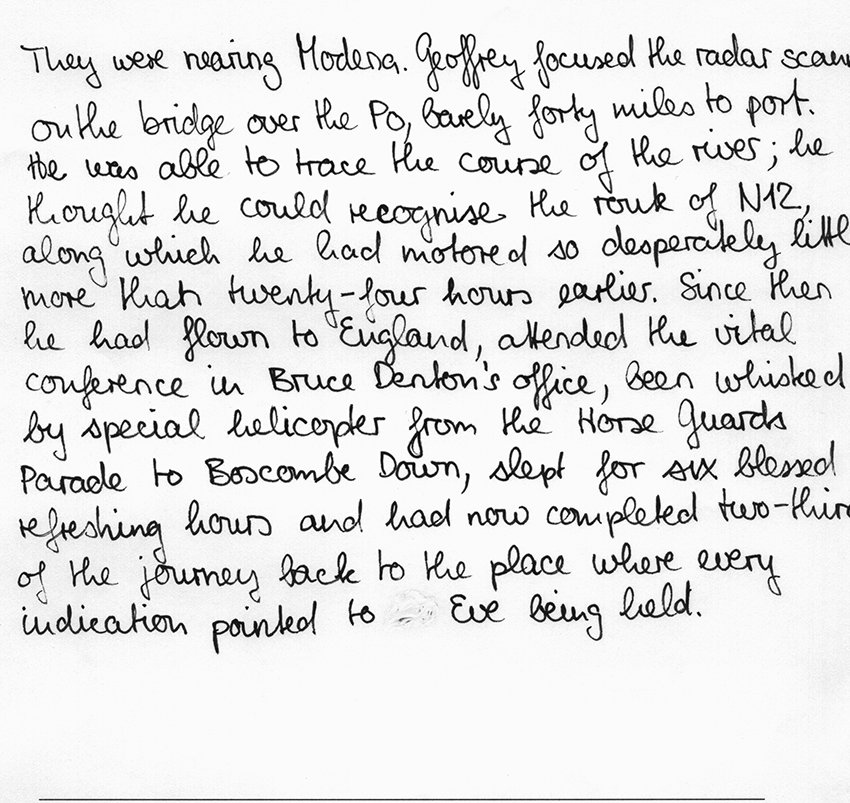 They were nearing Modena. Geoffrey focused the radar scan
on the bridge over the Po, barely forty miles to port.
He was able to trace the course of the river; he
thought he could recognise the route of N12,
along which he had motored so desperately littl
more than twenty-four hours earlier. Since then
he had flown to England, attended the vital
conference in Bruce Denton's office, been whisked
by special helicopter from the Horse Guards
Parade to Boscombe Down, slept for six blessed
refreshing hours and had now completed two-third
of the journey back to the place where every
indication pointed to Eve being held.